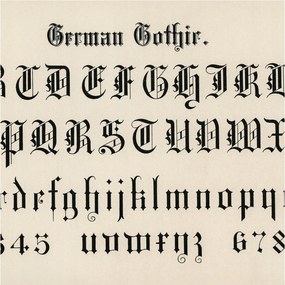 German Gothic.
BCDEFGHIJKL
PQRSTUVWX
rdefghijklmnopq
345 uvwxyz 678